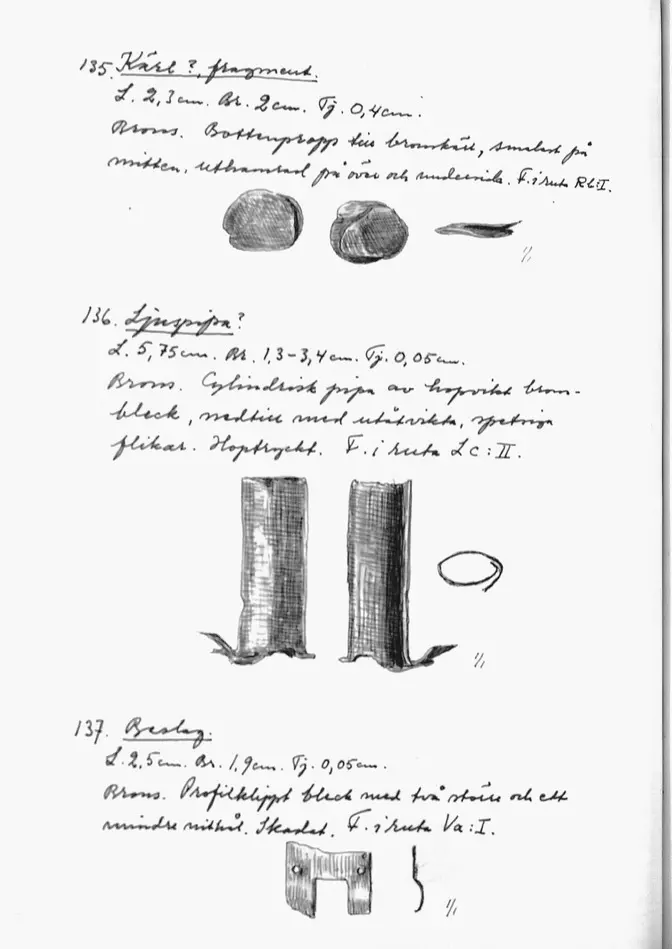 135. Kärl?, fragment.
L. 2,3 cm. Br. 2 cm. Tj. 0,4 cm.
Brons. Bottenpropp till bronskärl, smalast på
mitten, uthamrad på över och undersida. F. i ruta Rb:I.
1/1
136. Ljuspipa?
L. 5,75 cm. Br. 1,3-3,4 cm. Tj. 0,05 cm.
Brons. Cylindrisk pipa av hopvikt brons-
bleck, nedtill med utåtvikta, spetsiga
flikar. Hoptryckt. F. i ruta Lc:II.
1/1
137. Beslag.
L. 2,5 cm. Br. 1,9 cm. Tj. 0,05 cm.
Brons. Profilklippt bleck med två större och ett
mindre nithål. Skadat. F. i ruta Va:I.
1/1